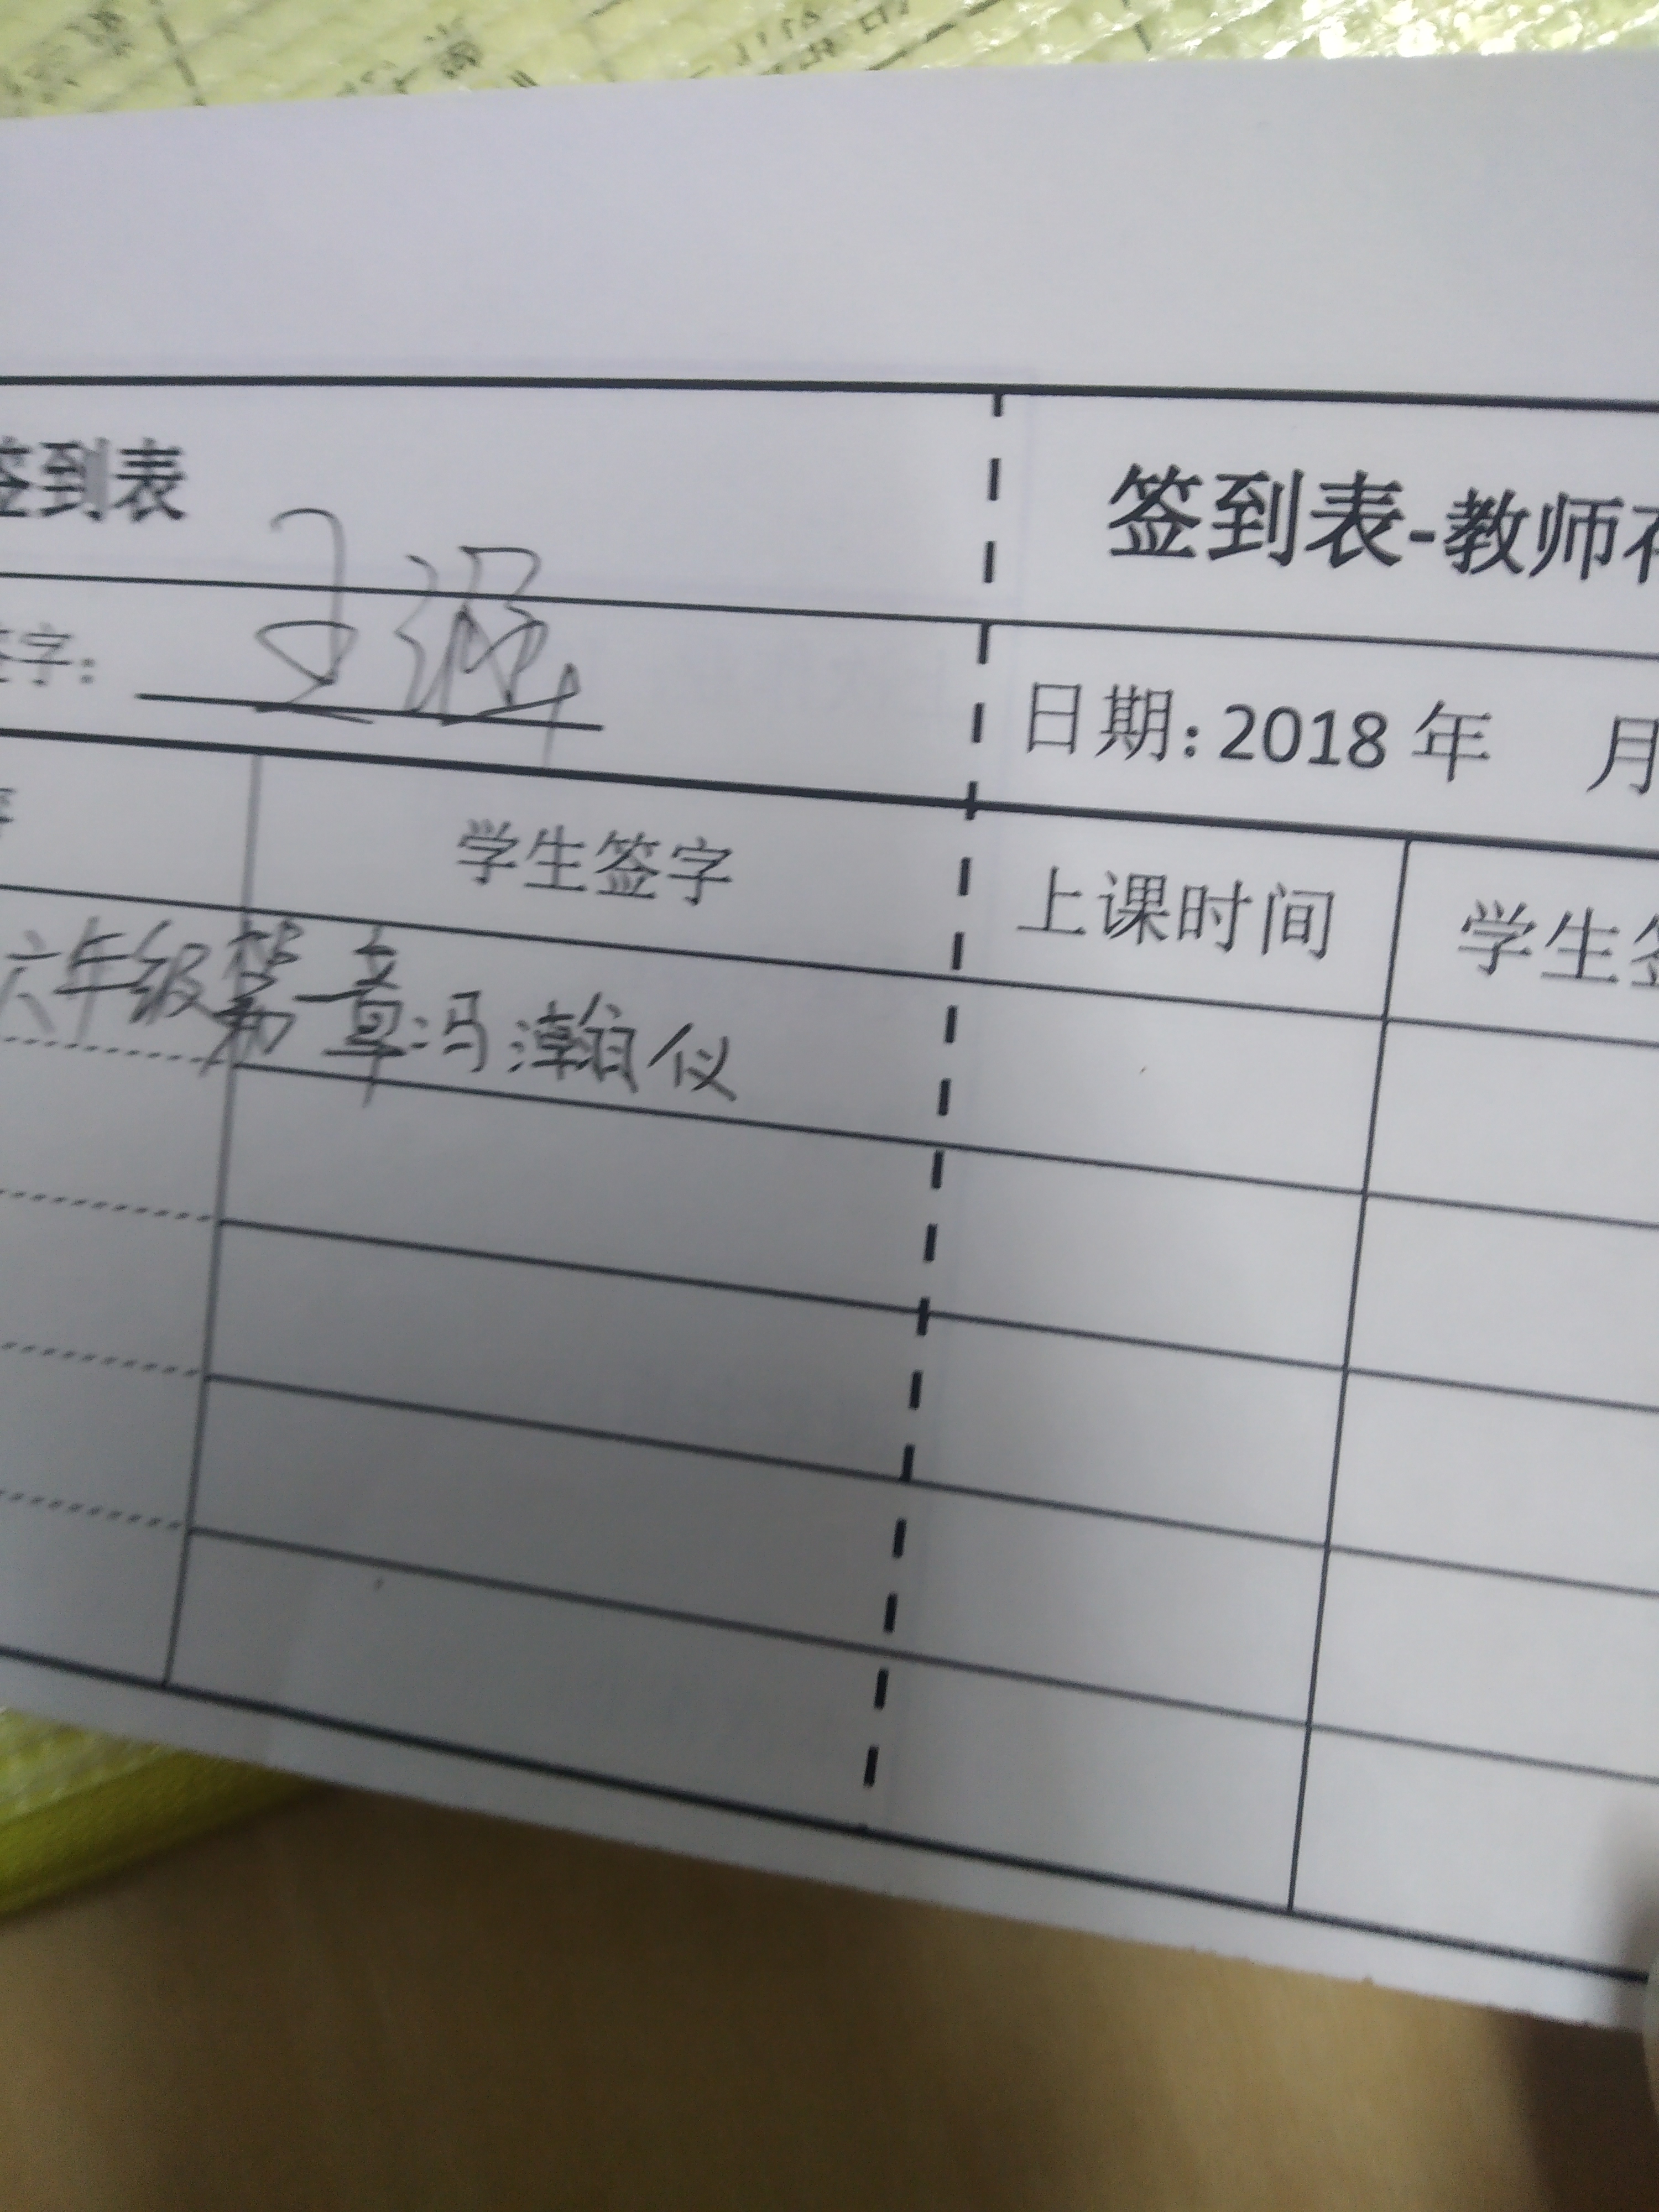 签到表
签字：
学生签字
六年级第一章 冯瀚仪
签到表-教师
日期：2018年 月
上课时间 学生签